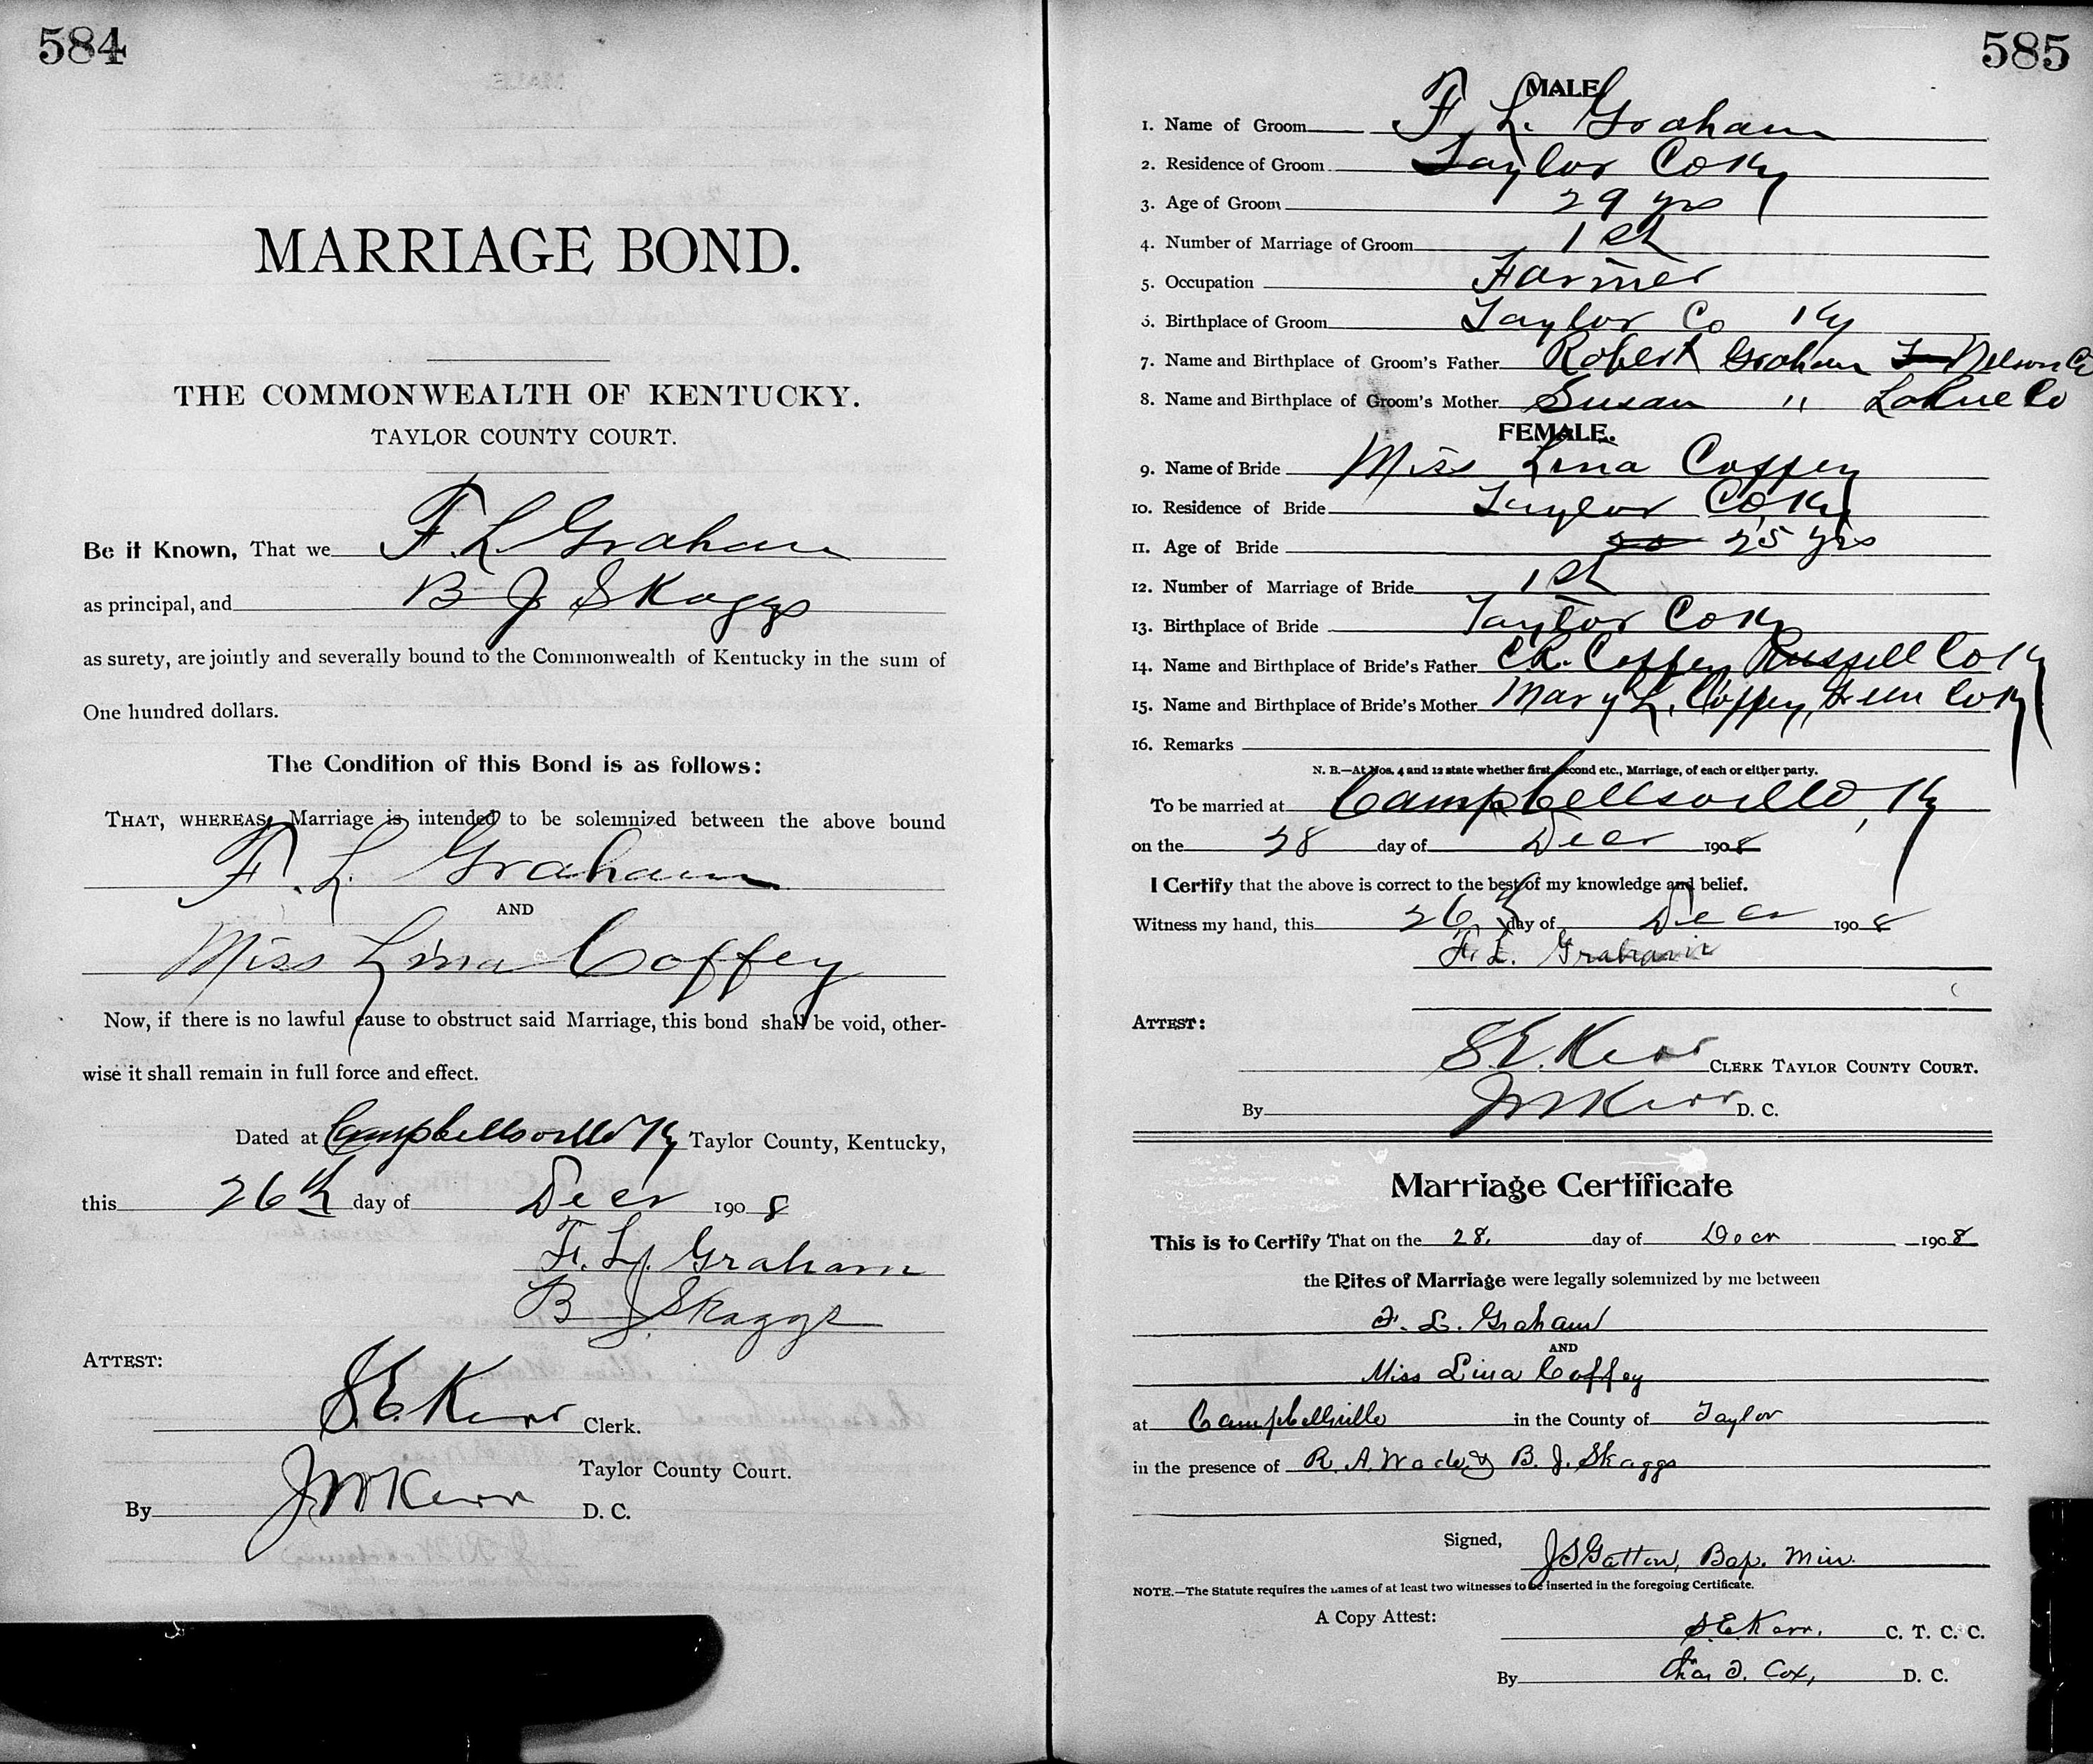 584
MARRIAGE BOND.
THE COMMONWEALTH OF KENTUCKY.
TAYLOR COUNTY COURT.
Be it Known, That we F. L. Graham
as principal, and B J Skaggs
as surety, are jointly and severally bound to the Commonwealth of Kentucky in the sum of
One hundred dollars.
The Condition of this Bond is as follows:
THAT, WHEREAS, Marriage is intended to be solemnized between the above bound
F. L. Graham
AND
Miss Lina Coffey
Now, if there is no lawful cause to obstruct said Marriage, this bond shall be void, other-
wise it shall remain in full force and effect.
Dated at Campbellsville Ky Taylor County, Kentucky,
this 26th day of Decr 1908
F. L. Graham
B J Skaggs
ATTEST:
S. E. Kerr Clerk.
Taylor County Court.
By J M Kerr D. C.
585
MALE.
1. Name of Groom F. L. Graham
2. Residence of Groom Taylor Co Ky
3. Age of Groom 29 yrs
4. Number of Marriage of Groom 1st
5. Occupation Farmer
6. Birthplace of Groom Taylor Co Ky
7. Name and Birthplace of Groom's Father Robert Graham Nelson Co
8. Name and Birthplace of Groom's Mother Susan " LaRue Co
FEMALE.
9. Name of Bride Miss Lina Coffey
10. Residence of Bride Taylor Co, Ky
11. Age of Bride 25 yrs
12. Number of Marriage of Bride 1st
13. Birthplace of Bride Taylor Co Ky
14. Name and Birthplace of Bride's Father C.R. Coffey Russell Co Ky
15. Name and Birthplace of Bride's Mother Mary L. Coffey, Co Ky
16. Remarks
N. B.—At Nos. 4 and 12 state whether first, second etc., Marriage, of each or either party.
To be married at Campbellsville, Ky
on the 28 day of Decr 1908
I Certify that the above is correct to the best of my knowledge and belief.
Witness my hand, this 26 day of Decr 1908
F. L. Graham
ATTEST:
S. E. Kerr CLERK TAYLOR COUNTY COURT.
By J M Kerr D. C.
Marriage Certificate
This is to Certify That on the 28. day of Decr 1908
the Rites of Marriage were legally solemnized by me between
F. L. Graham
AND
Miss Lina Coffey
at Campbellsville in the County of Taylor
in the presence of R. A. Wade & B. J. Skaggs
Signed, J S Gatton, Bap. Min.
NOTE.—The Statute requires the names of at least two witnesses to be inserted in the foregoing Certificate.
A Copy Attest:
S. E. Kerr, C. T. C. C.
By Cox, D. C.